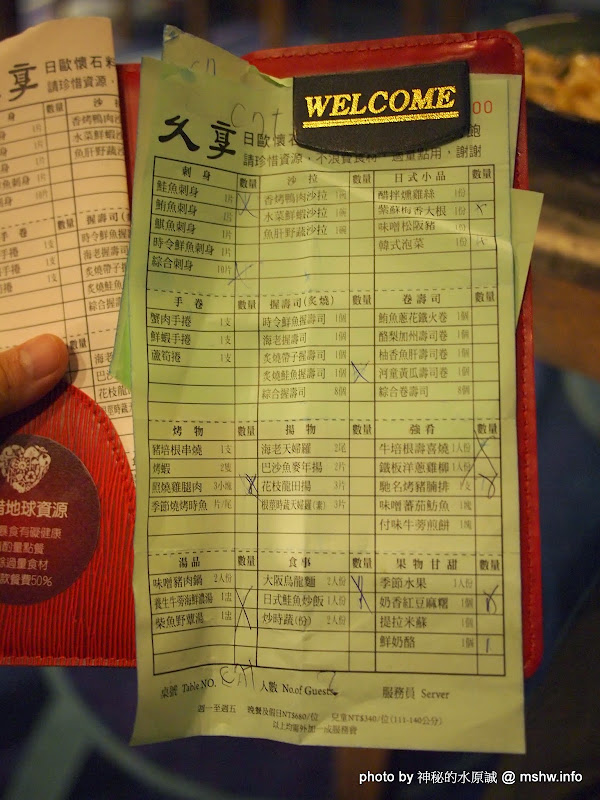 WELCOME
久享 日歐懷石
請珍惜資源,不浪費食材,適量點用,謝謝
刺身 數量 沙拉 數量 日式小品 數量
鮭魚刺身 1片 香烤鴨肉沙拉 1碗 醋拌燻雞絲 1份
鮪魚刺身 1片 水菜鮮蝦沙拉 1碗 紫蘇梅香大根 1份
旗魚刺身 1片 魚肝野蔬沙拉 1碗 味噌松阪豬 1份
時令鮮魚刺身 1片 韓式泡菜 1份
綜合刺身 10片
手卷 數量 握壽司(炙燒) 數量 卷壽司 數量
蟹肉手捲 1支 時令鮮魚握壽司 1個 鮪魚蔥花鐵火卷 1個
鮮蝦手捲 1支 海老握壽司 1個 酪梨加州壽司 1個
蘆筍捲 1支 炙燒帶子握壽司 1個 柚香魚肝壽司 1個
炙燒鮭魚握壽司 1個 河童黃瓜壽司 1個
綜合握壽司 8個 綜合卷壽司 8個
烤物 數量 揚物 數量 強肴 數量
豬培根串燒 1支 海老天婦羅 2尾 牛培根壽喜燒 1人份
烤蝦 2隻 巴沙魚麥年揚 2片 鐵板洋蔥雞柳 1人份
照燒雞腿肉 3小塊 花枝龍田揚 3片 馳名烤豬腩排 1支
季節燒烤時魚 片/尾 根莖時蔬天婦羅(素) 3片 味噌蕃茄魴魚 1塊
付味牛蒡煎餅 1塊
湯品 數量 食事 數量 果物甘甜 數量
味噌豬肉鍋 2人份 大阪烏龍麵 2人份 季節水果 1人份
養生牛蒡海鮮濃湯 1盅 日式鮭魚炒飯 1人份 奶香紅豆麻糬 1個
柴魚野蕈湯 1盅 炒時蔬(份) 2人份 提拉米蘇 1個
鮮奶酪 1個 1
桌號 Table NO. 人數 No.of Guests 2 服務員 Server
週一至週五 晚餐及假日NT$660/位 兒童NT$340/位 (111-140公分)
以上均需外加一成服務費
惜地球資源
暴食有礙健康
酌量點餐
餘過量食材
款餐費50%
photo by 神秘的水原誠 @ mshw.info